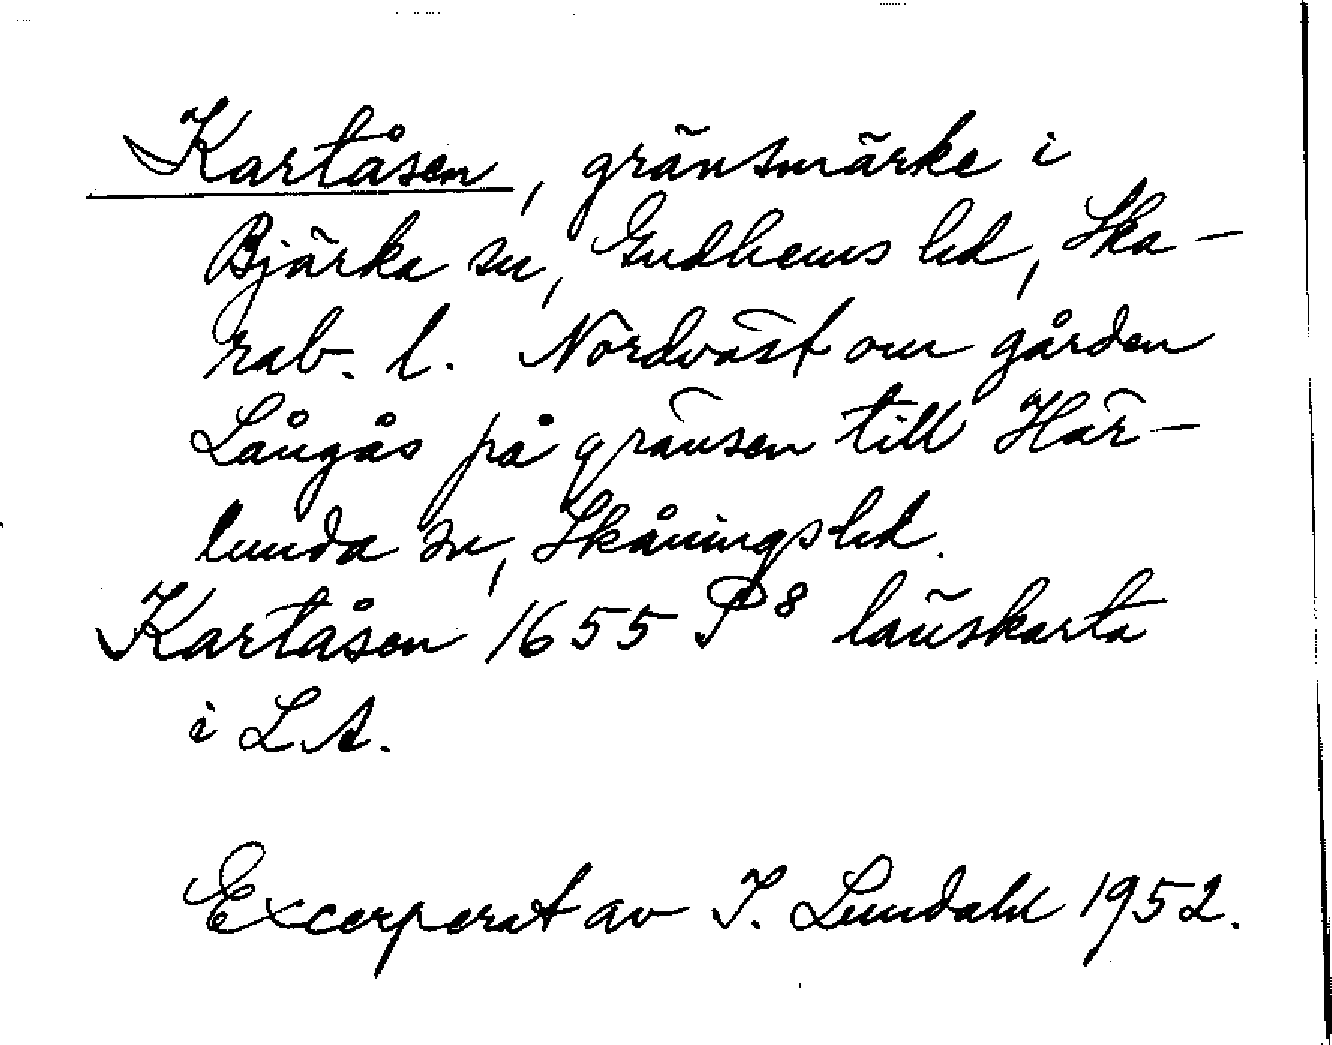 Kartåsen, gränsmärke i
Bjärka sn, Gudhems hd, Ska-
rab. l. Nordväst om gården
Långås på gränsen till Här-
lunda sn, Skånings hd.
Kartåsen 1655 P⁸ länskarta
i L.A.
Excerperat av I. Lundahl 1952.